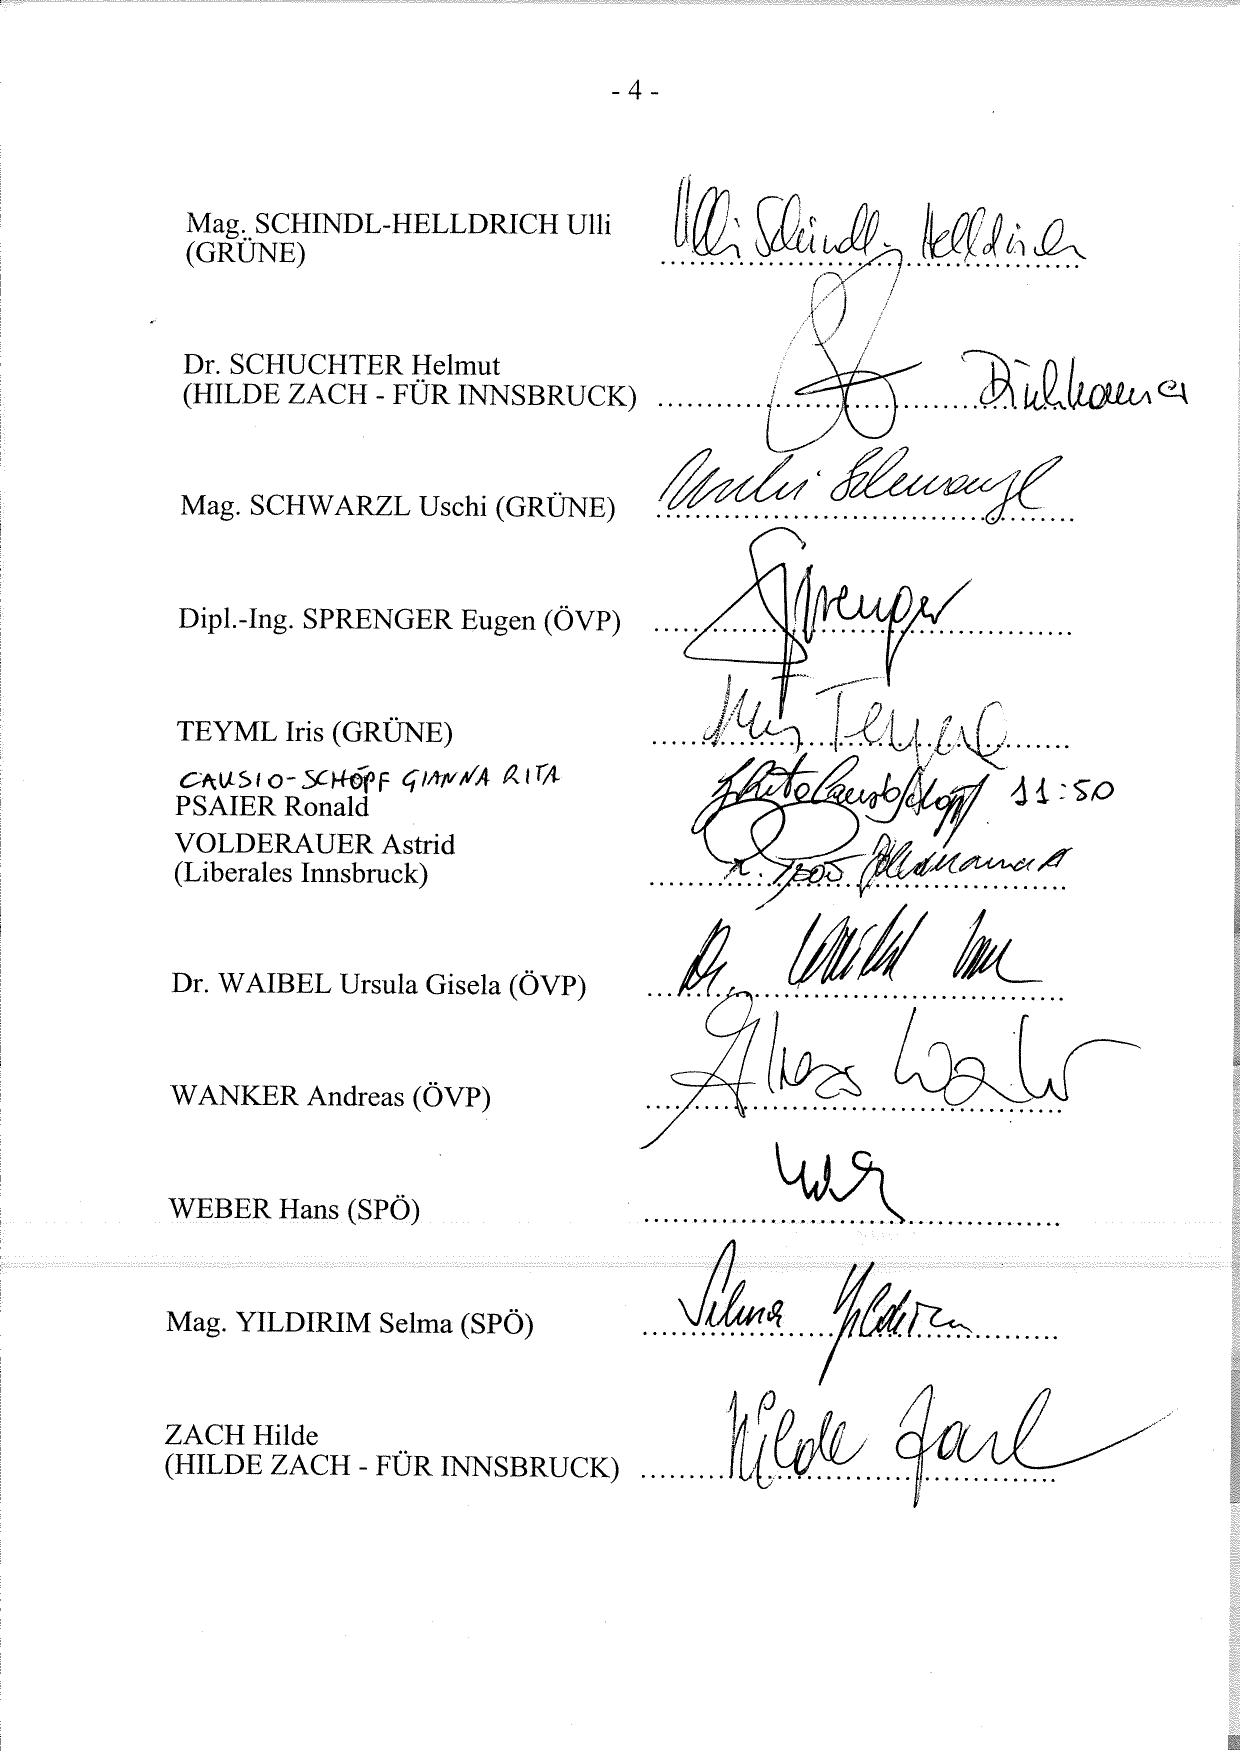 - 4 -
Mag. SCHINDL-HELLDRICH Ulli
(GRÜNE) Ulli Schindl-Helldrich
Dr. SCHUCHTER Helmut
(HILDE ZACH - FÜR INNSBRUCK)
Mag. SCHWARZL Uschi (GRÜNE) Uschi Schwarzl
Dipl.-Ing. SPRENGER Eugen (ÖVP) Sprenger
TEYML Iris (GRÜNE) Iris Teyml
CAUSIO-SCHÖPF GIANNA RITA 11:50
PSAIER Ronald
VOLDERAUER Astrid
(Liberales Innsbruck) Volderauer A
Dr. WAIBEL Ursula Gisela (ÖVP) Dr.
WANKER Andreas (ÖVP)
WEBER Hans (SPÖ)
Mag. YILDIRIM Selma (SPÖ) Selma Yildirim
ZACH Hilde Hilde Zach
(HILDE ZACH - FÜR INNSBRUCK)